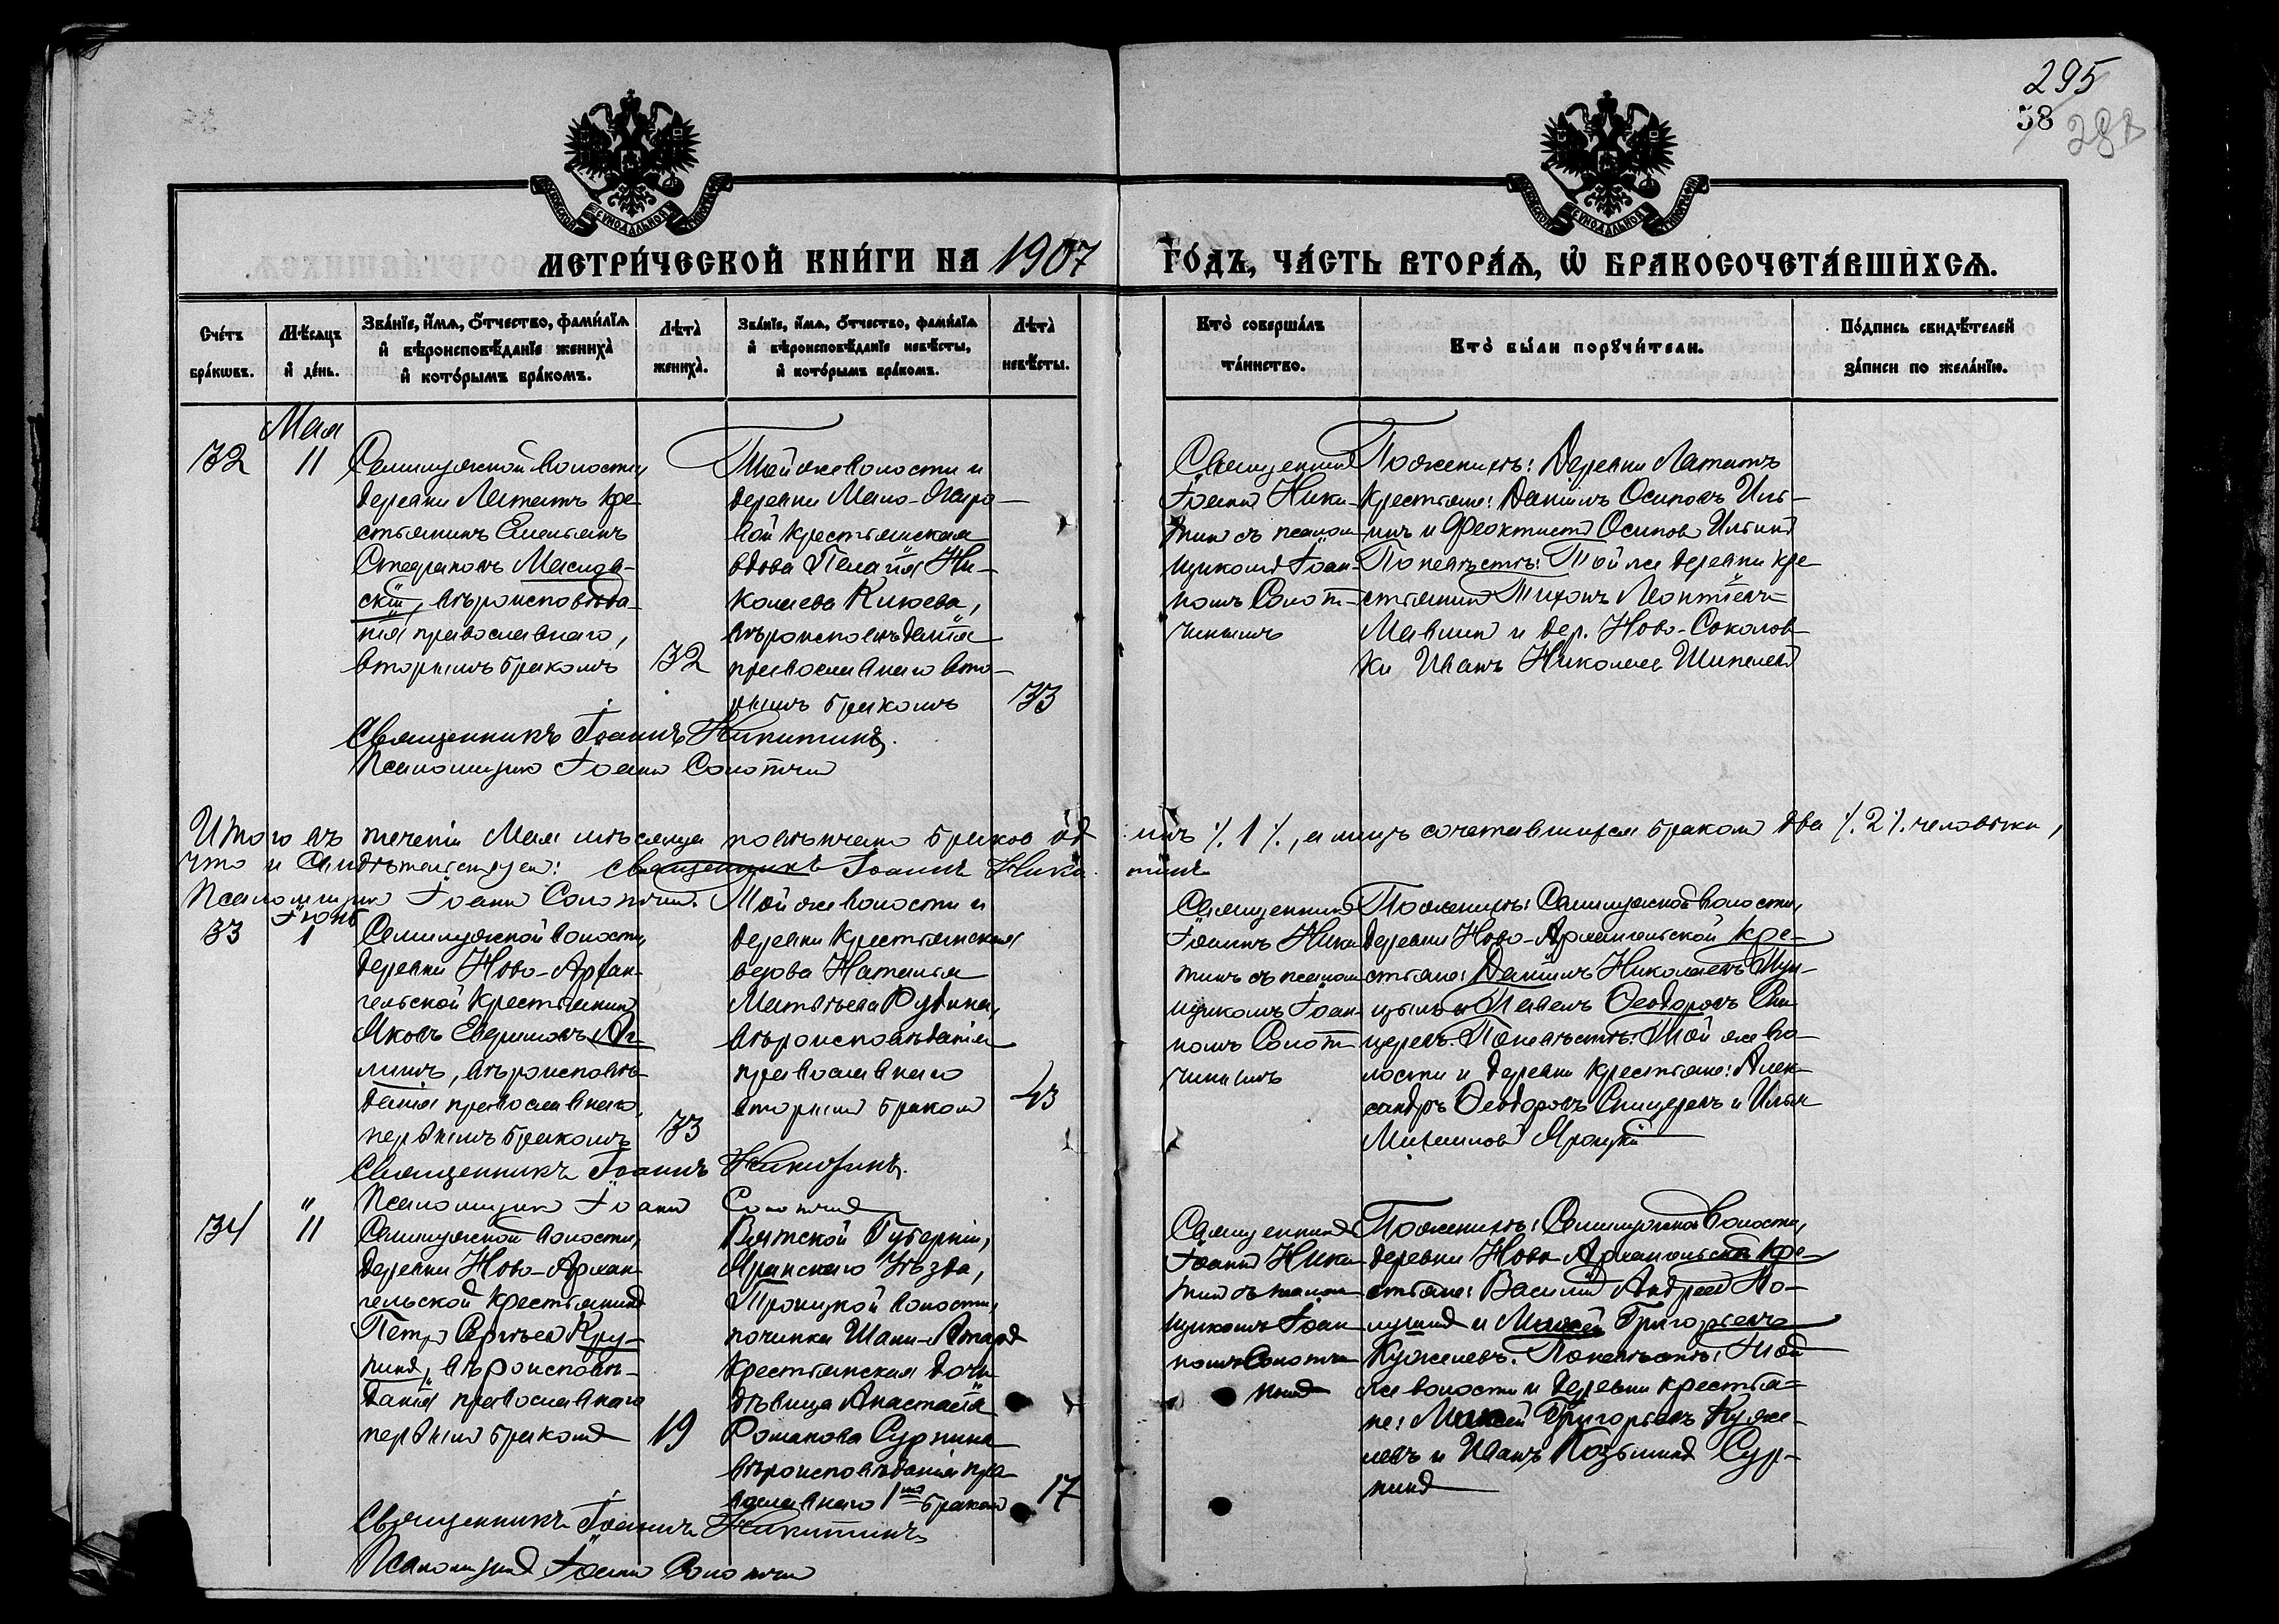 295
58
МЕТРИ́ЧЕСКОЙ КНИ́ГИ НА 1907 ГО́ДЪ, ЧА́СТЬ ВТОРА́Ѧ, Ѡ БРАКОСОЧЕТА́ВШИХСѦ.
Сче́тъ бра́кѡвъ.
Мѣ́сѧцъ и҆ де́нь.
Зва́нїе, и҆́мѧ, ѻ҆́тчество, фами́лїѧ и҆ вѣроисповѣ́данїе жениха̀ и҆ кото́рымъ бра́комъ.
Лѣта̀ жениха̀.
Зва́нїе, и҆́мѧ, ѻ҆́тчество, фами́лїѧ и҆ вѣроисповѣ́данїе невѣ́сты, и҆ кото́рымъ бра́комъ.
Лѣта̀ невѣ́сты.
Кто̀ соверша́лъ та́инство.
Кто̀ бы́ли порꙋчи́тели.
По́дпись свидѣ́телей за́писи по жела́нїю.
Мая
32
11
волости,
деревни Латышъ кре-
стьянинъ Емельянъ
Маслов-
скій, вѣроисповѣда-
нія православнаго,
вторымъ бракомъ
32
Той же волости и
деревни Мало-
вой крестьянская
вдова Пелагія Ни-
колаева
вѣроисповѣданія
православнаго вто-
рымъ бракомъ
33
Священникъ
Іоаннъ Ники-
тинъ съ псалом-
щикомъ Іоан-
номъ Солот-
чинымъ
По женихѣ: Деревни Латышъ
крестьяне: Даніилъ Осиповъ Иль-
инъ и Феоктистъ Осиповъ Ильинъ
По невѣстѣ: Той же деревни кре-
стьянинъ Тихонъ Леонтіевъ
и дер. Ново-Соколов-
ки Иванъ Николаевъ
Священникъ Іоаннъ Никитинъ.
Псаломщикъ Іоаннъ Солотчин
Итого въ теченіи Мая мѣсяца повѣнчано браковъ од
инъ ⁒ 1 ⁒, а лицъ сочетавшихся бракомъ два ⁒ 2 ⁒ человѣка,
что и свидѣтельствуемъ: Священникъ Іоаннъ Ники-
тинъ
Псаломщикъ Іоаннъ Солотчин.
Іюнь
33
1
волости,
деревни Ново-Архан-
гельской крестьянинъ
Яковъ Ефимовъ
линъ, вѣроисповѣ-
данія православнаго,
первымъ бракомъ
33
Той же волости и
деревни крестьянская
вдова Наталья
Матвѣева
вѣроисповѣданія
православнаго
вторымъ бракомъ
43
Священникъ
Іоаннъ Ники-
тинъ съ псалом-
щикомъ Іоан-
номъ Солот-
чинымъ
По женихѣ: волости,
деревни Ново-Архангельской кре-
стьяне: Даніилъ Николаевъ
и Павелъ Ѳеодоровъ Спи-
церевъ. По невѣстѣ: Той же во-
лости и деревни крестьяне: Алек-
сандръ Ѳеодоровъ Спицеревъ и Илья
Михаиловъ
Священникъ Іоаннъ Никитинъ.
Псаломщикъ Іоаннъ Солотчин
34
"
11
волости,
деревни Ново-Архан-
гельской крестьянинъ
Петръ Сергѣевъ
вѣроисповѣ-
данія православнаго
первымъ бракомъ
19
Вятской Губерніи,
Яранскаго Уѣзда,
Троицкой волости,
починка
крестьянская дочь
дѣвица Анастасія
Романова Сурнина
вѣроисповѣданія пра-
вославнаго 1мъ бракомъ
17
Священникъ
Іоаннъ Ники-
тинъ съ псалом-
щикомъ Іоан-
номъ Солотчи-
нымъ
По женихѣ: волости,
деревни Ново-Архангельской кре-
стьяне: Василій Андреевъ
и Григорьевъ
По невѣстѣ: Той
же волости и деревни крестья-
не: Григорьевъ
и Иванъ Козьминъ Сур-
нинъ
Священникъ Іоаннъ Никитинъ
Псаломщикъ Іоаннъ Солотчин